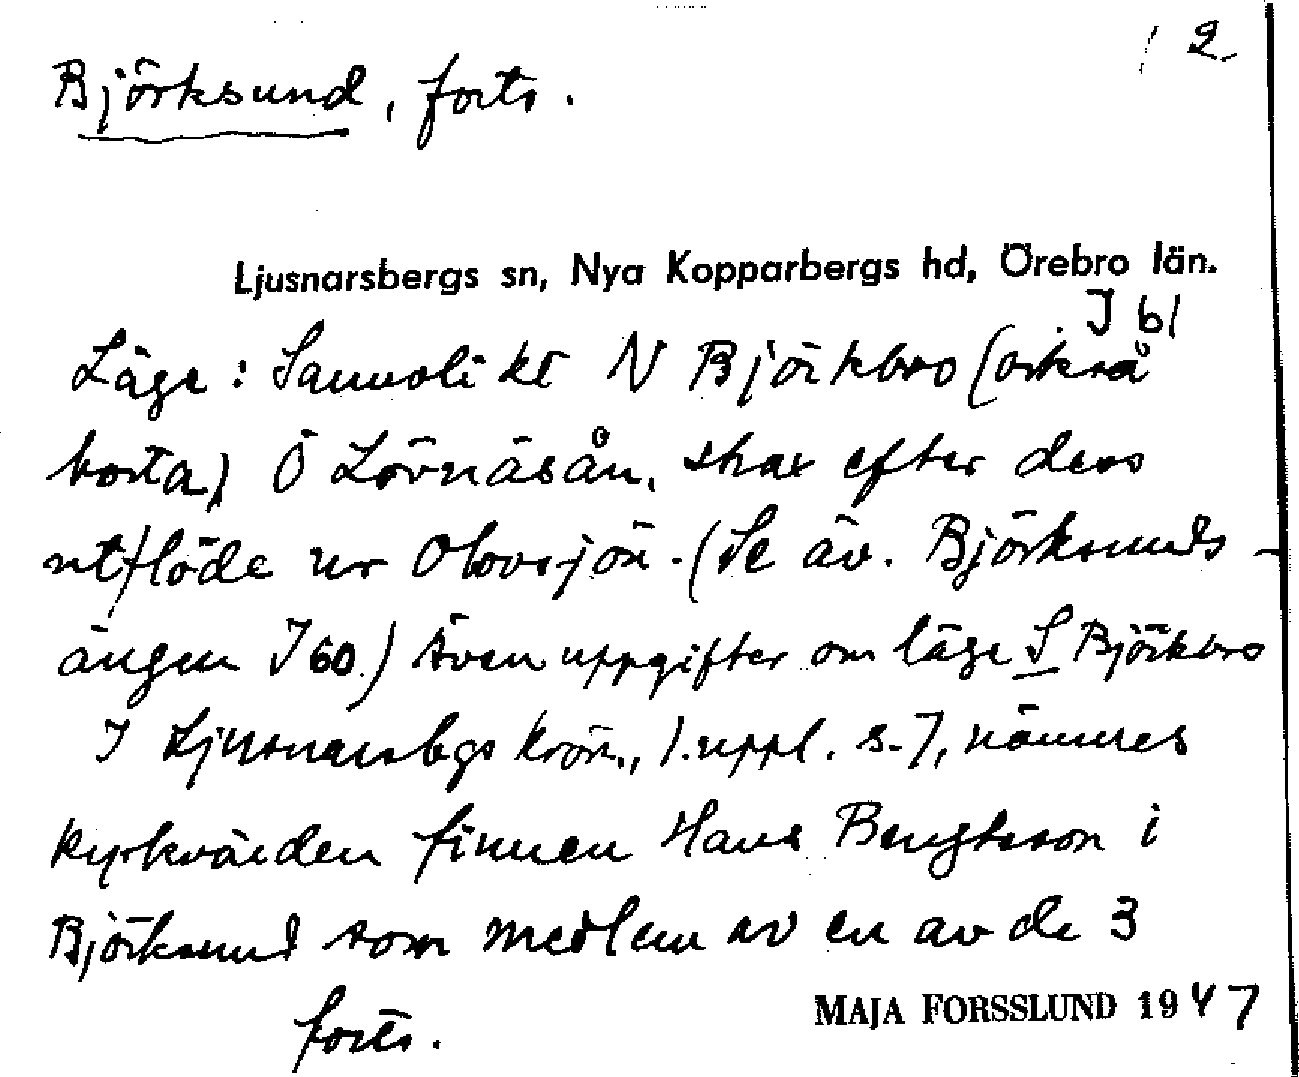 2
Björksund, forts.
Ljusnarsbergs sn, Nya Kopparbergs hd, Örebro län.
I 61
Läge: Sannolikt N Björkbro (också
borta) Ö Lövnäsån, strax efter dess
utflöde ur Olovsjön. (Se äv. Björksunds-
ängen I 60.) Även uppgifter om läge S Björkbro
I Ljusnarsbgs krön., 1. uppl. s. 7, nämnes
kyrkvärden finnen Hans Bengtsson i
Björksund som medlem av en av de 3
forts.
MAJA FORSSLUND 1947